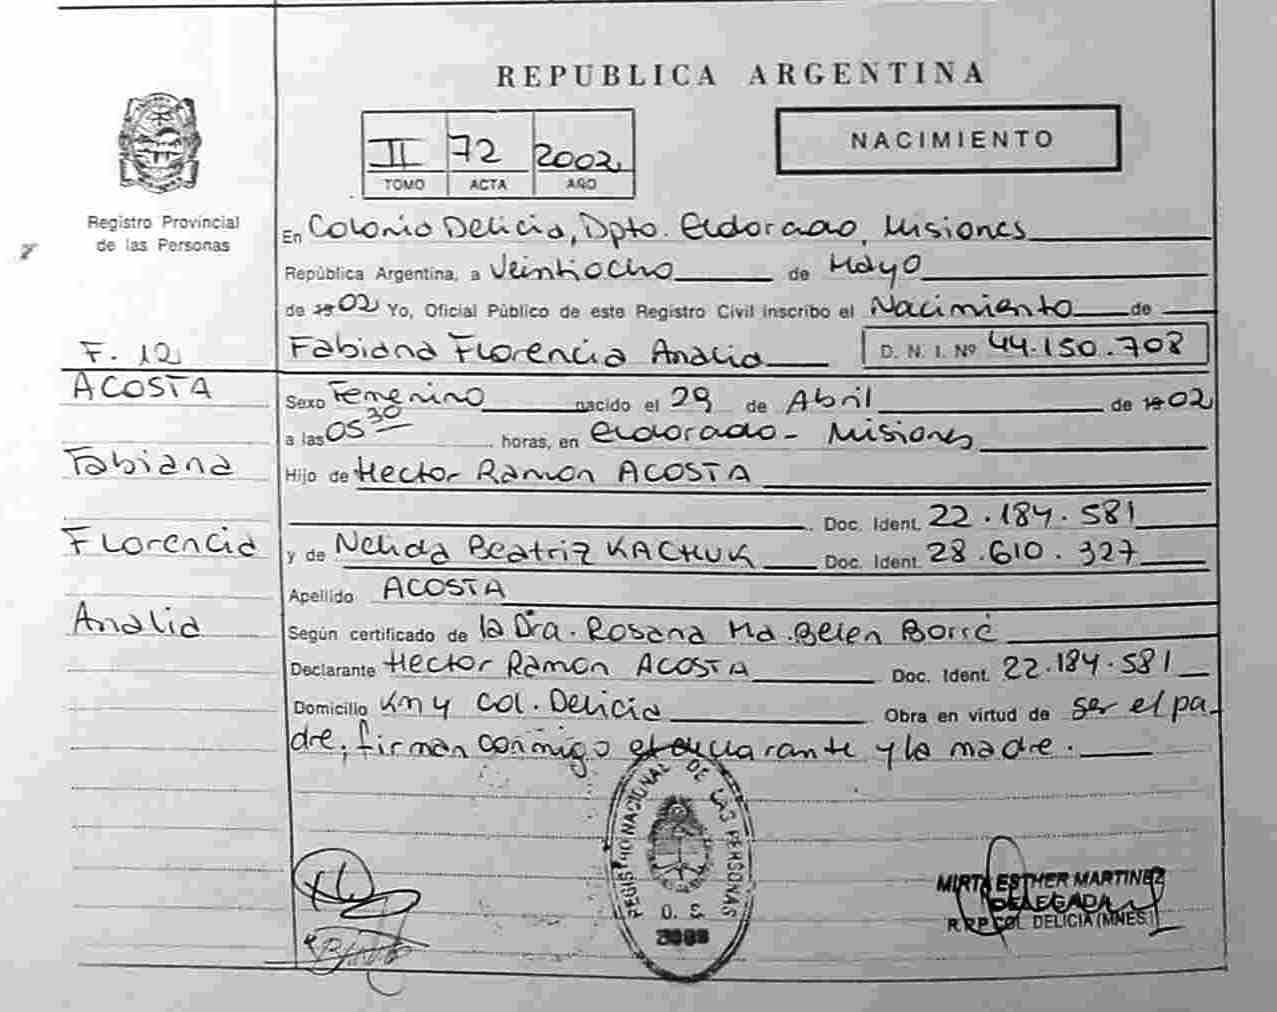 REPUBLICA ARGENTINA
II 72 2002
TOMO ACTA AÑO
NACIMIENTO
Registro Provincial
de las Personas
En Colonia Delicia, Dpto. Eldorado, Misiones
República Argentina, a Veintiocho de Mayo
de 02 Yo, Oficial Público de este Registro Civil inscribo el Nacimiento de
Fabiana Florencia Analia D. N. I. Nº 44.150.708
F. 12
ACOSTA
Fabiana
Florencia
Analia
Sexo Femenino nacido el 29 de Abril de 02
a las 05 30 horas, en Eldorado - Misiones
Hijo de Hector Ramon ACOSTA
Doc. Ident. 22.184.581
y de Nelida Beatriz KACHUK Doc. Ident. 28.610.327
Apellido ACOSTA
Según certificado de la Dra. Rosana Ma. Belen Borré
Declarante Hector Ramon ACOSTA Doc. Ident. 22.184.581
Domicilio Km 4 Col. Delicia Obra en virtud de ser el pa-
dre, firman conmigo el declarante y la madre.
REGISTRO NACIONAL DE LAS PERSONAS
MIRTA ESTHER MARTINEZ
DELEGADA
R.R.P COL DELICIA (MNES)